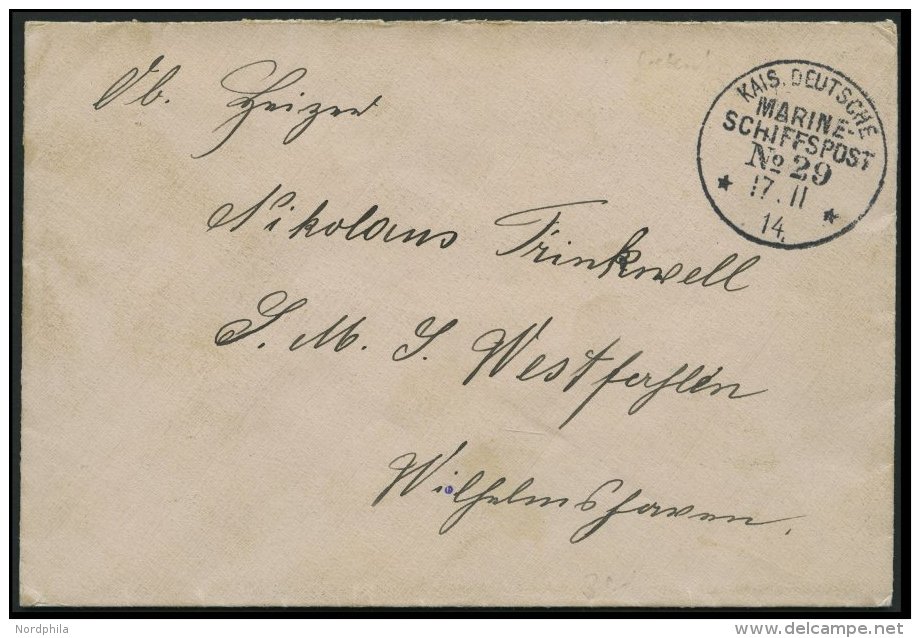 KAIS. DEUTSCHE
MARINE-
SCHIFFSPOST
No 29
17.11
14.
Ob. Heizer
Nikolaus Trinkwell
S. M. S. Westfahlen
Wilhelmshaven.
Nordphila
delcampe.net